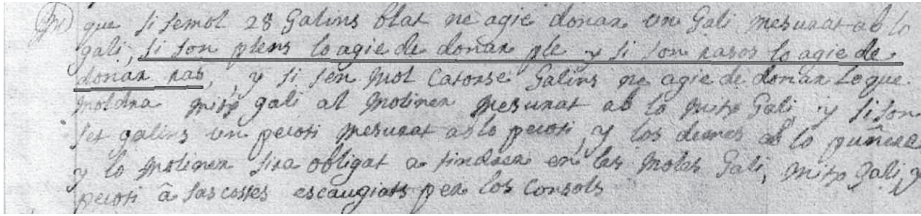 que si se mol 28 Galins blat ne agie donar un Gali mesurat ab lo
gali, si son plens lo agie de donar ple y si son rasos lo agie de
donar ras, y si sen mol Catorse Galins ne agie de donar lo que
moldra mitx gali al moliner mesurat ab lo mitx Gali y si son
set galins un pecoti mesurat ab lo pecoti, y los demes ab lo puñera
y lo moliner sira obligat a tindrer en las molas Gali, mitx Gali, y
pecoti á sas costes escaugiats per los Consols